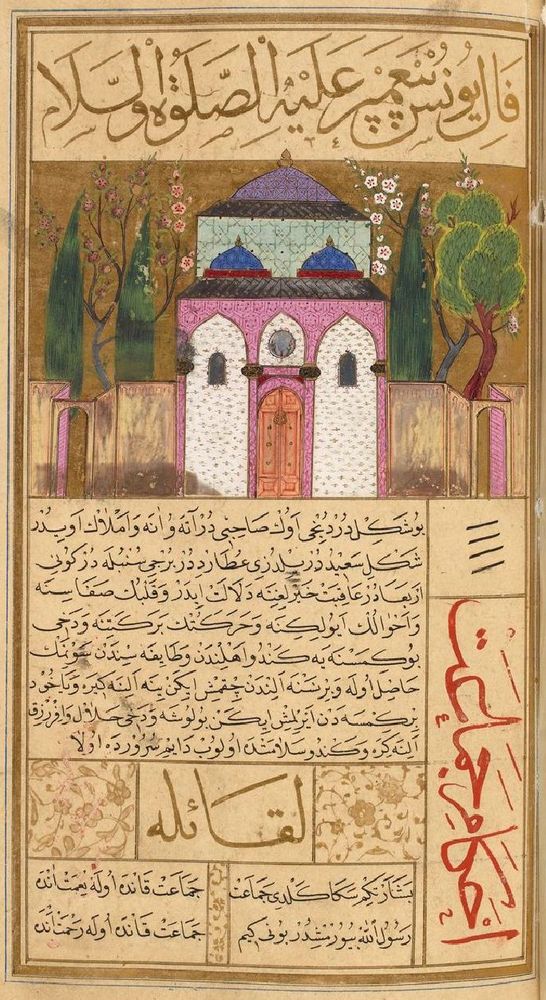 فال يونس پيغمبر عليه الصلوة والسلام
بو شكل دردنجى اوك صاحبى در آته وانه واملاك اويدر
شكل سعيددر يلدزى عطارددر برجى سنبله در كونى
اربعادر عاقبت خيرلغنه دلالت ايدر وقلبك صفاسنه
واحوالك ايولكنه وحركتك بركتنه ودخى
بوكمسنه يه كندو اهلندن وطايفه سندن سونمك
حاصل اوله وبر نسنه الندن چقمش ايكن ينه النه كيره وياخود
بر كمسه دن ايرلمش ايكن بولوشه ودخى حلال وافر رزق
النه كيره وكندو سلامتده اولوب دايم سرورده اولا
احكام جماعت
لقائله
بشارتكم سكا كلدى جماعت
جماعت قانده اوله نعمتاندن
رسول الله بيورمشدر بونى كيم
جماعت قانده اوله رحمتاندن